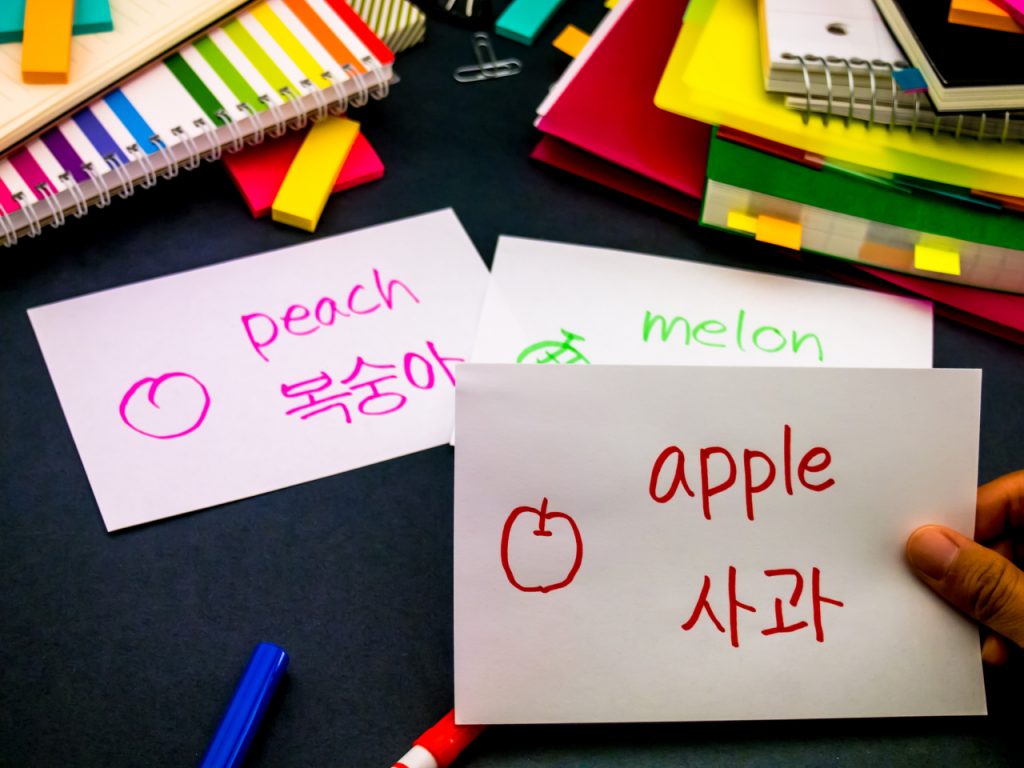 peach
복숭아
melon
apple
사과